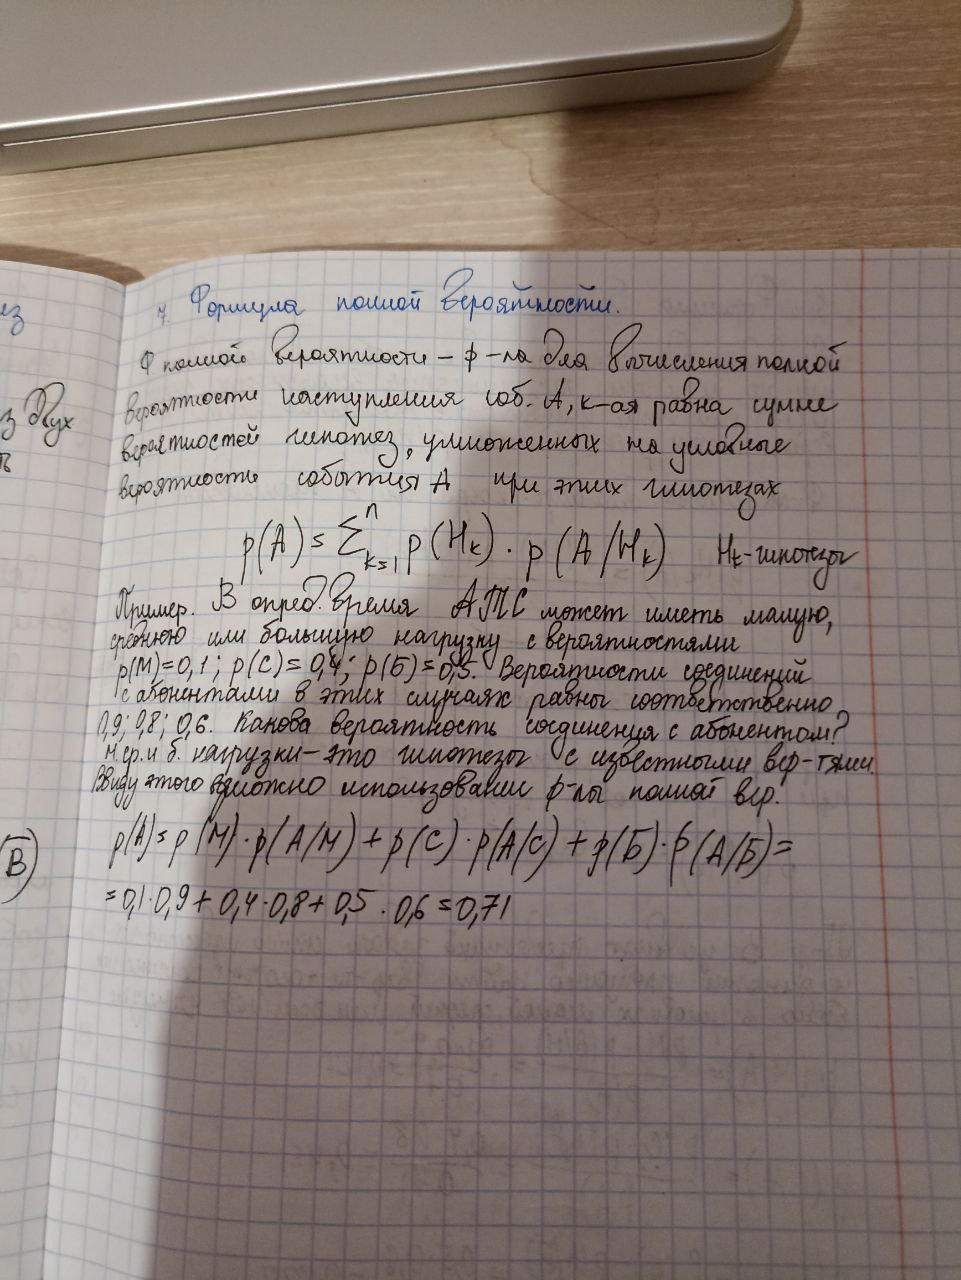 ез
з двух
В
7. Формула полной вероятности.
Ф полной вероятности – ф-ла для вычисления полной
вероятности наступления соб. А, к-ая равна сумме
вероятностей гипотез, умноженных на условные
вероятности события А при этих гипотезах
p(A) = ∑ⁿₖ₌₁ p(Hₖ) · p(A/Hₖ) Hₖ-гипотезы
Пример. В опред. время АТС может иметь малую,
среднюю или большую нагрузку с вероятностями
p(М)=0,1; p(С)=0,4; p(Б)=0,5. Вероятности соединений
с абонентами в этих случаях равны соответственно
0,9; 0,8; 0,6. Какова вероятность соединения с абонентом?
М. ср. и б. нагрузки – это гипотезы с известными вер-тями.
Ввиду этого возможно использовании ф-лы полной вер.
p(A) = p(М)·p(А/М) + p(С)·p(А/С) + p(Б)·p(А/Б) =
= 0,1·0,9 + 0,4·0,8 + 0,5·0,6 = 0,71